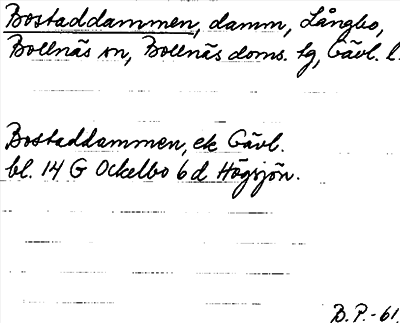 Bostaddammen, damm, Långbo,
Bollnäs sn, Bollnäs doms. tg, Gävl. l.
Bostaddammen, ek Gävl.
bl. 14 G Ockelbo 6d Högsjön.
B.P.-61